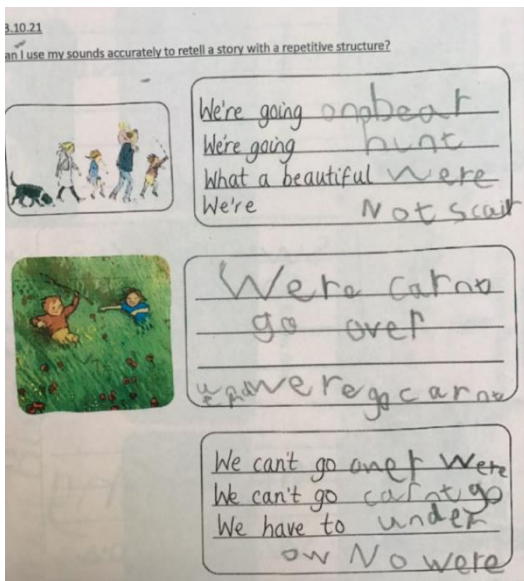 3.10.21
an I use my sounds accurately to retell a story with a repetitive structure?
We're going onabear
We're going hunt
What a beautiful were
We're Not scair
Were carnt
go over
were go carnt
We can't go oner were
We can't go carnt go
We have to under
ow No were